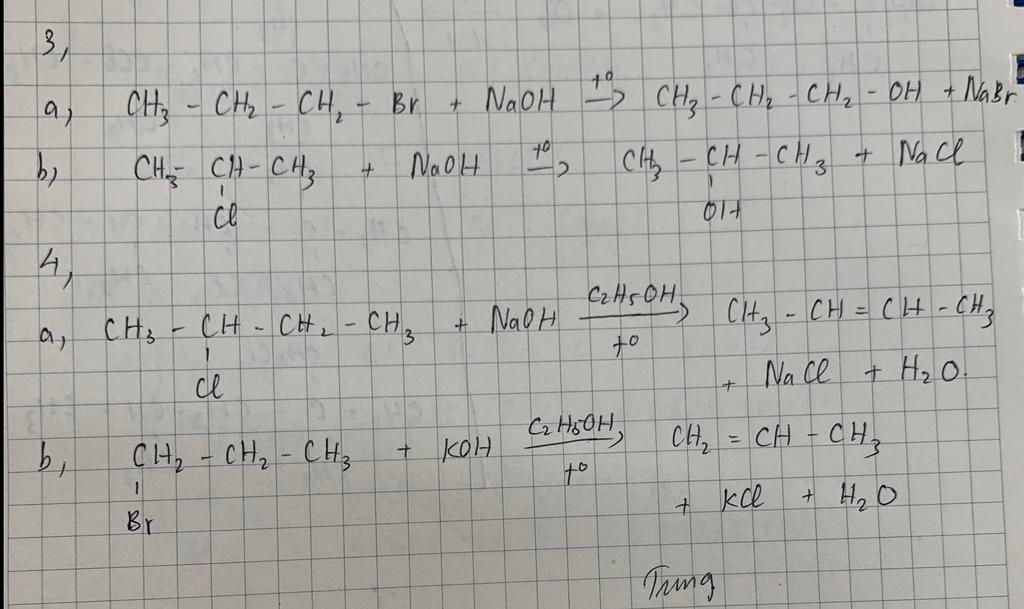 3,
a, CH3 - CH2 - CH2 - Br + NaOH →(t⁰) CH3 - CH2 - CH2 - OH + NaBr
b, CH3 - CH - CH3 + NaOH →(t⁰) CH3 - CH - CH3 + NaCl
Cl OH
4,
a, CH3 - CH - CH2 - CH3 + NaOH →(C2H5OH, t⁰) CH3 - CH = CH - CH3
Cl + NaCl + H2O.
b, CH2 - CH2 - CH3 + KOH →(C2H5OH, t⁰) CH2 = CH - CH3
Br + KCl + H2O
Trung